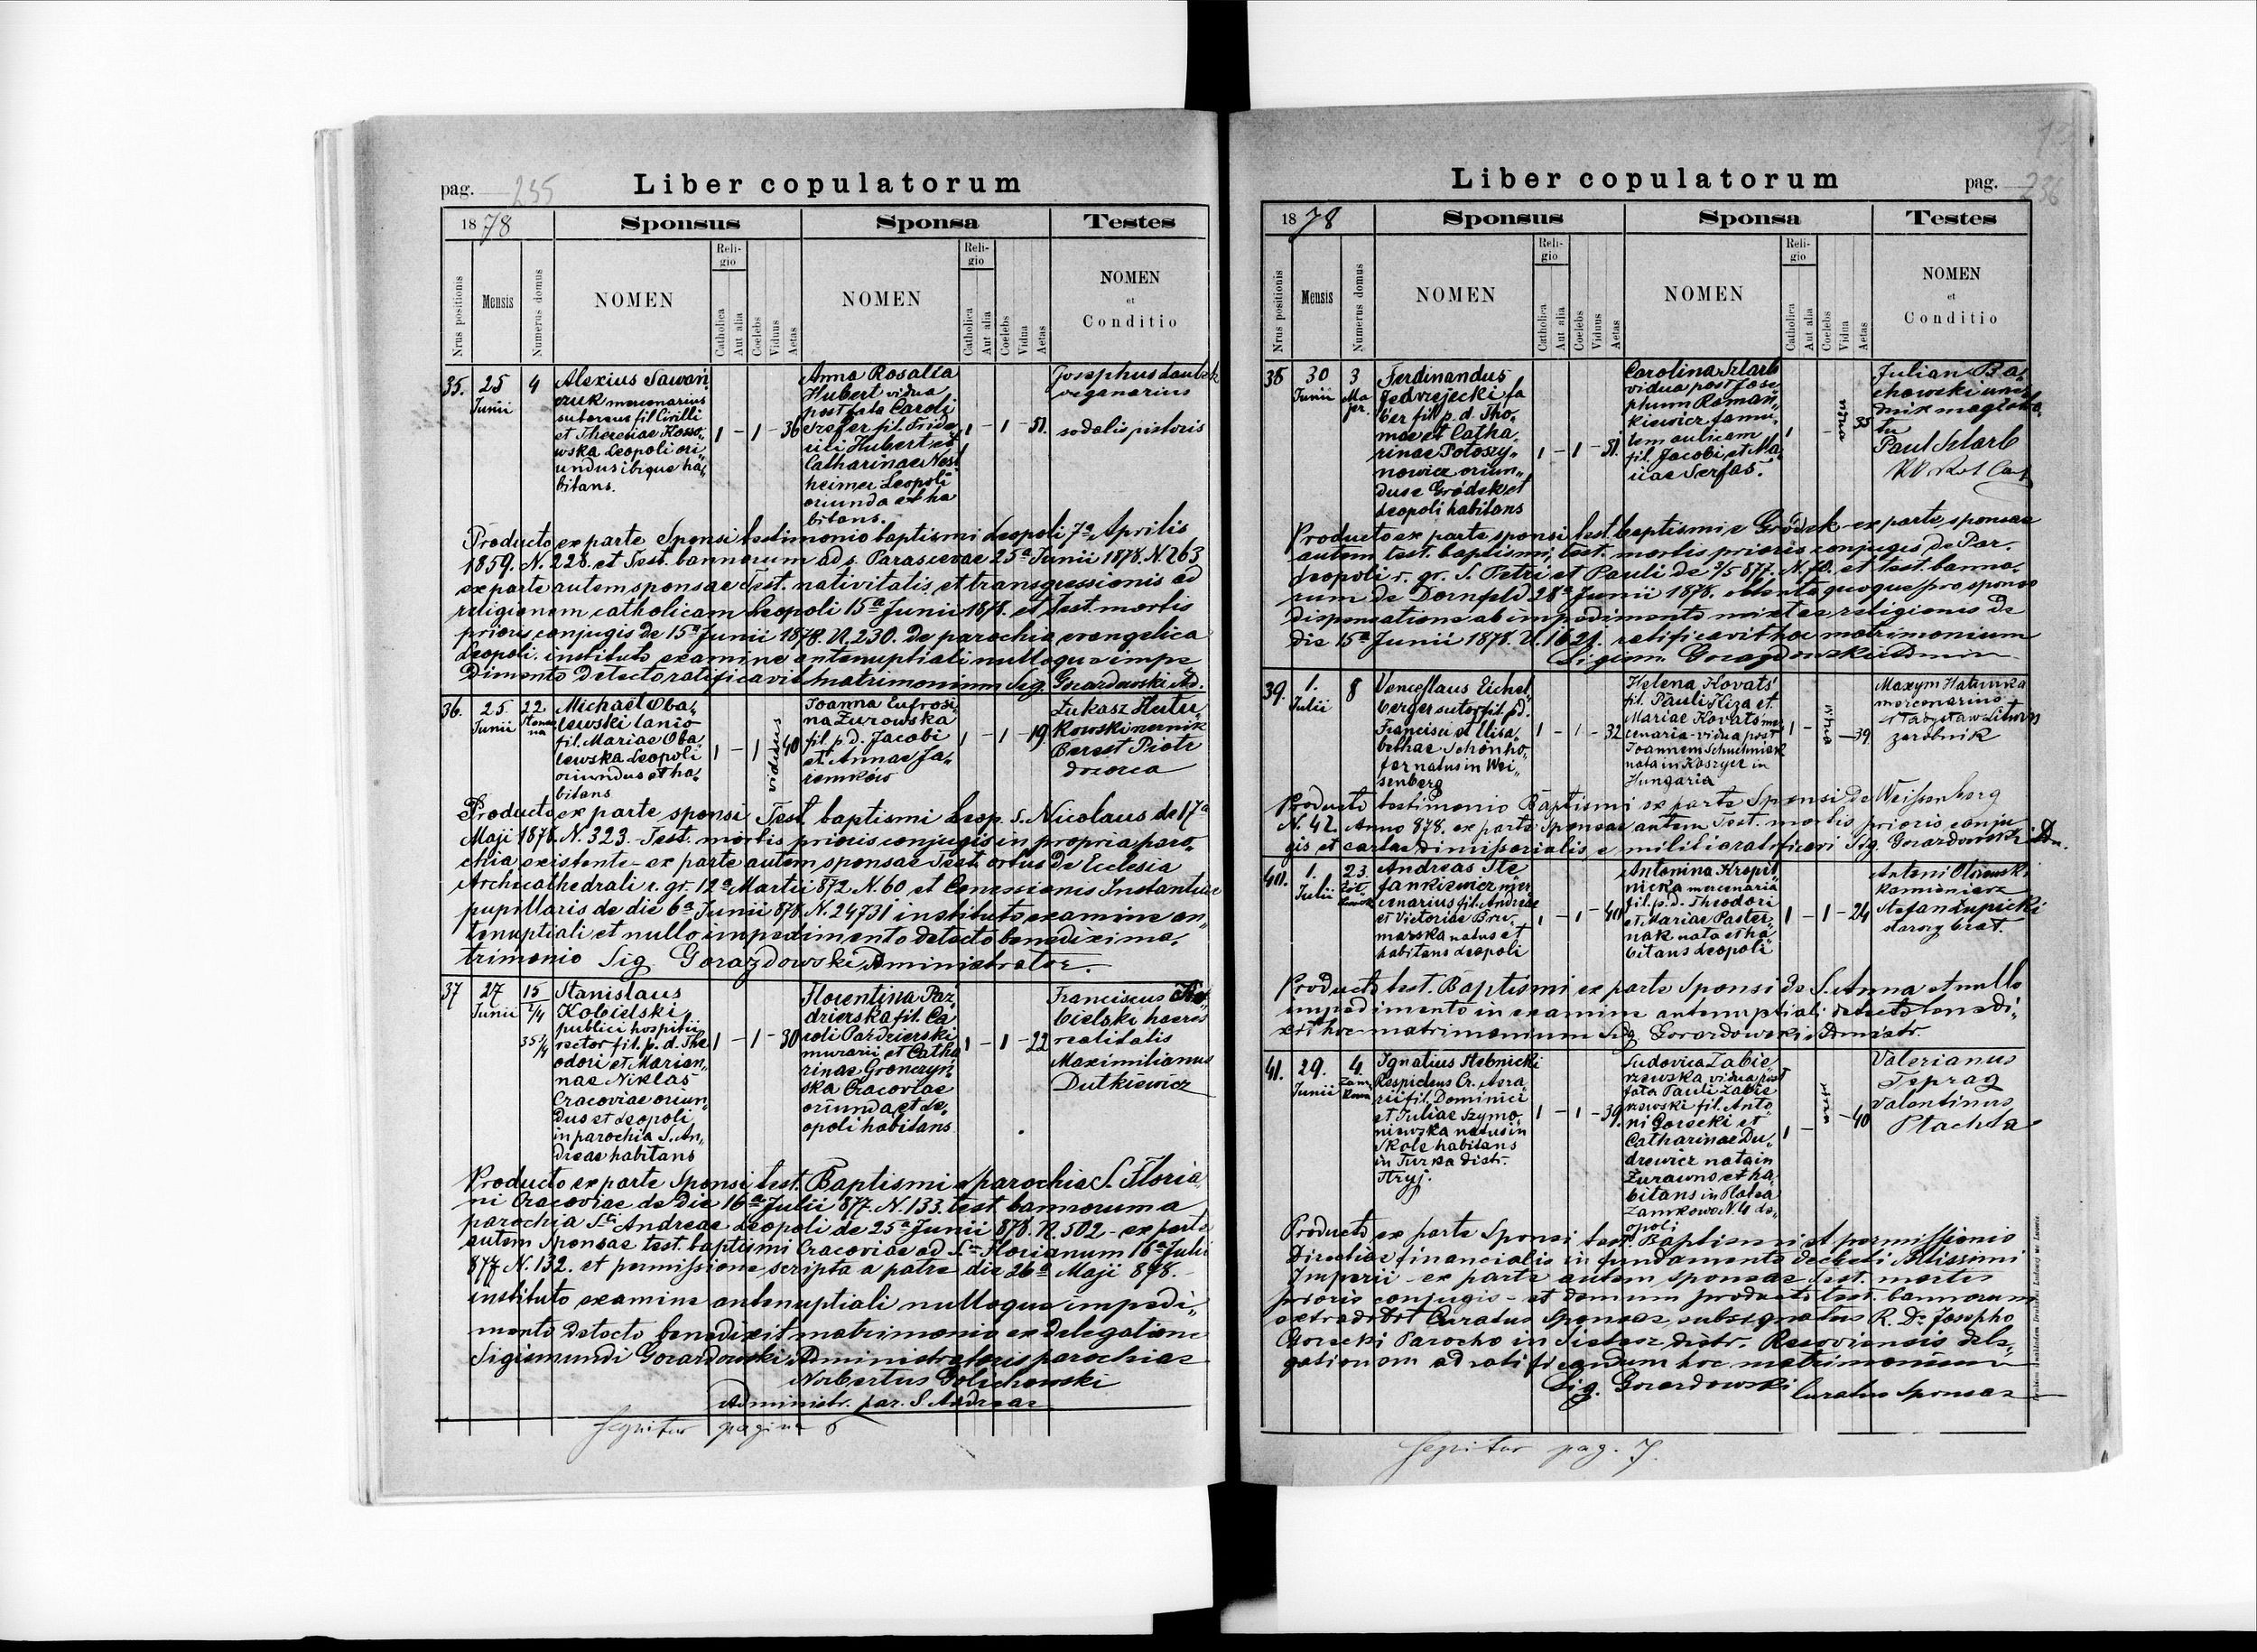 pag. 235
Liber copulatorum
1878
Sponsus
Sponsa
Testes
Nrus positionis
Mensis
Numerus domus
NOMEN
Religio
Catholica
Aut alia
Coelebs
Viduus
Aetas
NOMEN
Religio
Catholica
Aut alia
Coelebs
Vidua
Aetas
NOMEN
et
Conditio
35. 25 Junii 4
Alexius Sawań„
czuk mercenarius
fil Cirilli
et Theresiae Kosso„
wska Leopoli ori„
undus ibique ha„
bitans.
1 – 1 – 36
Anna Rosalia
Hubert vidua
post fata Caroli
fil. Fride„
rici Hubert et
Catharinae
Leopoli
oriunda et ha
bitans.
1 – 1 – 51.
Josephus
organarius
sodalis pistoris
Producto ex parte Sponsi testimonio baptismi Leopoli 7a Aprilis
1859. N. 228. et Test. bannorum ad s. Parascevae 25a Junii 1878. N. 263
ex parte autem sponsae Test. nativitatis et transgressionis ad
religionem catholicam Leopoli 15a Junii 1878. et Test. mortis
prioris conjugis de 15a Junii 1878. N. 230. de parochia evangelica
Leopoli. instituto examine antenuptiali nulloque impe
dimento detecto ratificavit matrimonium Sig. Gorazdowski Ad.
36. 25 Junii 22
Michaël Oba„
lewski lanio
fil. Mariae Oba„
lewska Leopoli
oriundus et ha„
bitans
1 – 1 viduus 40
Joanna Eufrosi„
na Żurowska
fil. p. d. Jacobi
et Annae Ja„
remków
1 – 1 – 19.
Łukasz Hutni„
kowski
Piotr
dozorca
Producto ex parte sponsi Test. baptismi Leop. S. Nicolaus de 17a
Maji 1876. N. 323. Test. mortis prioris conjugis in propria paro„
chia existente – ex parte autem sponsae Test. ortus de Ecclesia
Archicathedrali r. gr. 12a Martii 872 N. 60 et Concessionis Instantiae
pupillaris de die 6a Junii 878. N. 24731 instituto examine an„
tenuptiali et nullo impedimento detecto benedixi ma„
trimonio Sig. Gorazdowski Administrator.
37 27 Junii 15 2/4 35 1/4
Stanislaus
Kobielski
publici hospitii
rector fil. p. d. The
odori et Marian„
nae Niklas
Cracoviae oriun„
dus et Leopoli
in parochia S. An„
dreae habitans
1 – 1 – 30
Florentina Paź„
dzierska fil. Ca
roli Paździerski
murarii et Catha
rinae Gronczyń„
ska Cracoviae
oriunda et Le„
opoli habitans
1 – 1 – 22
Franciscus Ko
bielski haeres
realitatis
Maximilianus
Dutkiewicz
Producto ex parte Sponsi test. Baptismi e parochia S. Floria„
ni Cracoviae de die 16a Julii 877. N. 133. test. bannorum a
parochia Sti Andreae Leopoli de 25a Junii 878. N. 502 – ex parte
autem Sponsae test. baptismi Cracoviae ad S. Florianum 16a Julii
877 N. 132. et permissione scripta a patre die 26a Maji 878. –
instituto examine antenuptiali nulloque impedi„
mento detecto benedixit matrimonio ex delegatione
Sigismundi Gorazdowski Administratoris parochiae
Norbertus Golichowski
Administr. par. S. Andreae
Sequitur pagina 6
Liber copulatorum
pag. 236
1878
Sponsus
Sponsa
Testes
Nrus positionis
Mensis
Numerus domus
NOMEN
Religio
Catholica
Aut alia
Coelebs
Viduus
Aetas
NOMEN
Religio
Catholica
Aut alia
Coelebs
Vidua
Aetas
NOMEN
et
Conditio
38 30 Junii 3 Ma jer.
Ferdinandus
Jedrzejecki fa
ber fil p. d. Tho„
mae et Catha„
rinae Potoszy„
nowicz oriun„
dus e Gródek et
Leopoli habitans
1 – 1 – 51.
Carolina Szlarb
vidua post Jose
phum Roman„
kiewicz famu„
lam aulicam
fil. Jacobi et Ma„
riae Serfas.
1 – vidua 35
Julian Ba„
chowski
Paul Szlarb
Producto ex parte sponsi test. baptismi e Gródek – ex parte sponsae
autem test. baptismi, test. mortis prioris conjugis de Par.
Leopoli r. gr. S. Petri et Pauli de 3/5 877. N. 70. et test. banno„
rum de Dornfeld 28a Junii 1878. obtenta quoque pro sponso
dispensatione ab impedimento mixtae religionis de
die 15a Junii 1878. N. 1621. ratificavit hoc matrimonium
Sigism. Gorazdowski Admin
39. 1. Julii 8
Venceslaus Eichel„
berger sutor fil. p. d.
Francisci et Elisa„
bethae Schönho„
fer natus in Wei„
senberg
1 – 1 – 32
Helena Kovats
fil. Pauli Kiza et
Mariae Kovats mer
cenaria – vidua post
Joannem Schuchniak
nata in Kaszyce in
Hungaria
1 – vidua – 39
Maxym Hatunka
mercenarius
Władysław Litwin
zarobnik
Producto testimonio Baptismi ex parte Sponsi de Weissenberg
N. 42. Anno 878. ex parte Sponsae autem Test. mortis prioris conju
gis et cartae dimissorialis e militia ratificavi Sig. Gorazdowski Adm.
40. 1. Julii 23.
Andreas Ste
fankiewicz mer
cenarius fil. Andreae
et Victoriae Bru„
marska natus et
habitans Leopoli
1 – 1 – 40
Antonina Kropil
nicka mercenaria
fil. p. d. Theodori
et Mariae Paster„
nak nata et ha„
bitans Leopoli
1 – 1 – 24
Antoni
kamieniarz
Stefan Łupicki
starszy brat.
Producto test. Baptismi ex parte Sponsi de S. Anna et nullo
impedimento in examine antenuptiali detecto benedi„
xit hoc matrimonium Sig. Gorazdowski Administr.
41. 29. Junii 4. Zam kowa
Ignatius Stebnicki
Respiciens Cr. Aera
rii fil. Dominici
et Juliae Szymo
niewska natus in
Skole habitans
in Turka distr.
Stryj.
1 – 1 – 39.
Ludovica Zabie„
rzewska vidua post
fata Pauli Zabie
rzewski fil. Anto
ni Gorecki et
Catharinae Du„
drewicz nata in
Żurawno et ha„
bitans in Platea
Zamkowa N. 4 Le„
opoli
1 – vidua – 40
Valerianus
Valentinus
Płachta
Producto ex parte Sponsi test. Baptismi et permissionis
Directiae financialis in fundamento decreti Altissimi
Imperii – ex parte autem sponsae Test. mortis
prioris conjugis – et demum producto test. bannorum
extradidit Curatus Sponsae subsignatus R. D. Josepho
Gorecki Parocho in distr. Resoviensis dele„
gationem ad ratificandum hoc matrimonium
Sig. Gorazdowski Curatus Sponsae
Sequitur pag. 7.